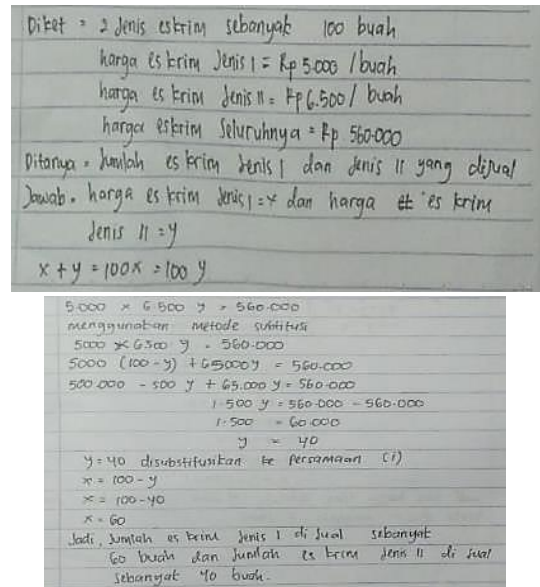 Diket = 2 Jenis eskrim sebanyak 100 buah
harga es krim Jenis I = Rp 5.000 / buah
harga es krim Jenis II = Rp 6.500 / buah
harga eskrim Seluruhnya = Rp 560.000
Ditanya = Jumlah es krim Jenis I dan Jenis II yang dijual
Jawab = harga es krim Jenis I = x dan harga es krim
Jenis II = y
x + y = 100x = 100 y
5.000 x 6 500 y = 560.000
menggunakan metode subtitusi
5000 x 6500 y = 560.000
5000 (100 - y) + 65000y = 560.000
500.000 - 500 y + 65.000 y = 560.000
1.500 y = 560.000 - 560.000
1.500 = 60.000
y = 40
y = 40 disubstitusikan ke persamaan (i)
x = 100 - y
x = 100 - 40
x = 60
Jadi, Jumlah es krim Jenis I di Jual sebanyak
60 buah dan Jumlah es krim Jenis II di Jual
Sebanyak 40 buah.